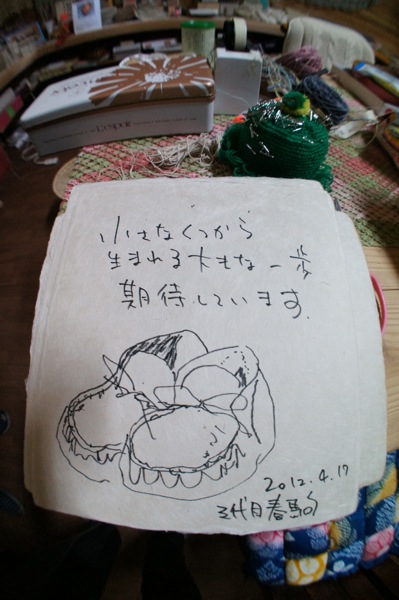 小さなくつから
生まれる大きな一歩
期待しています.
2012.4.17